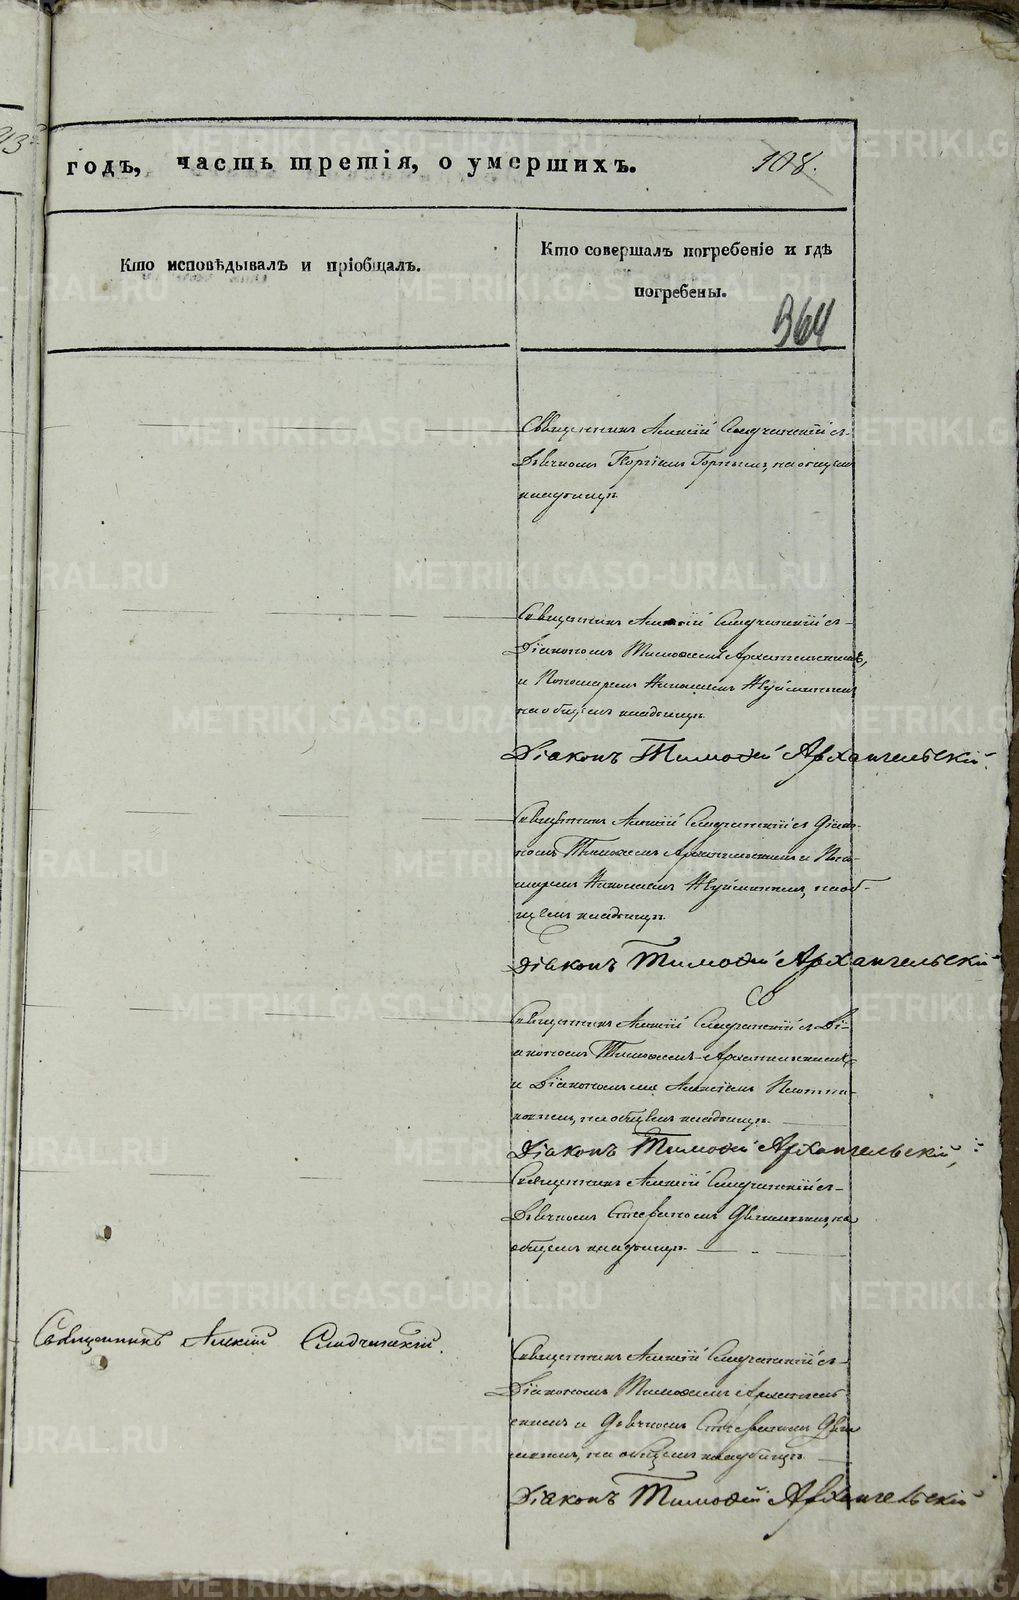 годъ, часть третія, о умершихъ.
108.
Кто исповѣдывалъ и пріобщалъ.
Кто совершалъ погребеніе и гдѣ
погребены.
364
Священникъ Алексій съ
Дьячкомъ Георгіемъ на общемъ
кладбищѣ
Священникъ Алексій съ
Діакономъ Тимофеемъ Архангельскимъ,
и Пономаремъ Николаемъ
на общемъ кладбищѣ
Діаконъ Тимоѳей Архангельскій.
Священникъ Алексій съ Діако-
номъ Тимофеемъ Архангельскимъ и Поно-
маремъ Николаемъ на об-
щемъ кладбищѣ
Діаконъ Тимоѳей Архангельскій
Священникъ Алексій съ Ді-
акономъ Тимофеемъ Архангельскимъ
и Алексіемъ
на общемъ кладбищѣ
Діаконъ Тимоѳей Архангельскій,
Священникъ Алексій съ
Дьячкомъ Стефаномъ на
общемъ кладбищѣ
Священникъ Алексій
Священникъ Алексій съ
Діакономъ Тимофеемъ Архангель-
скимъ и Дьячкомъ Стефаномъ
на общемъ кладбищѣ
Діаконъ Тимоѳей Архангельскій
METRIKI.GASO-URAL.RU